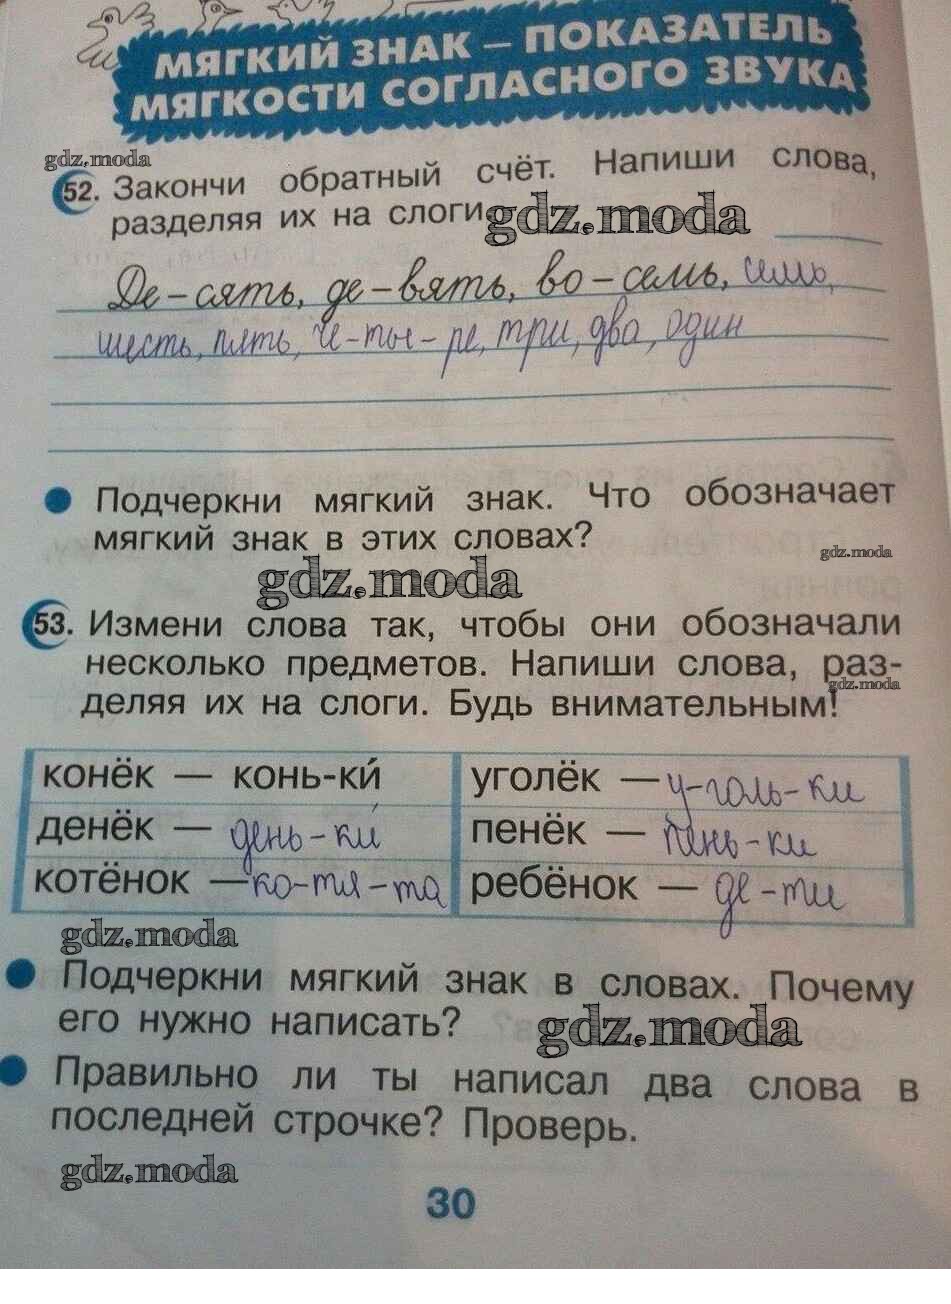 МЯГКИЙ ЗНАК – ПОКАЗАТЕЛЬ
МЯГКОСТИ СОГЛАСНОГО ЗВУКА
gdz.moda
52. Закончи обратный счёт. Напиши слова,
разделяя их на слоги.
gdz.moda
Де–сять, де–вять, во–семь, семь,
шесть, пять, че–ты–ре, три, два, один
Подчеркни мягкий знак. Что обозначает
мягкий знак в этих словах?
gdz.moda
gdz.moda
53. Измени слова так, чтобы они обозначали
несколько предметов. Напиши слова, раз-
деляя их на слоги. Будь внимательным!
gdz.moda
конёк — конь-ки́ уголёк — у-голь-ки
денёк — день-ки́ пенёк — пень-ки
котёнок — ко-тя-та ребёнок — де-ти
gdz.moda
Подчеркни мягкий знак в словах. Почему
его нужно написать?
gdz.moda
Правильно ли ты написал два слова в
последней строчке? Проверь.
gdz.moda
30